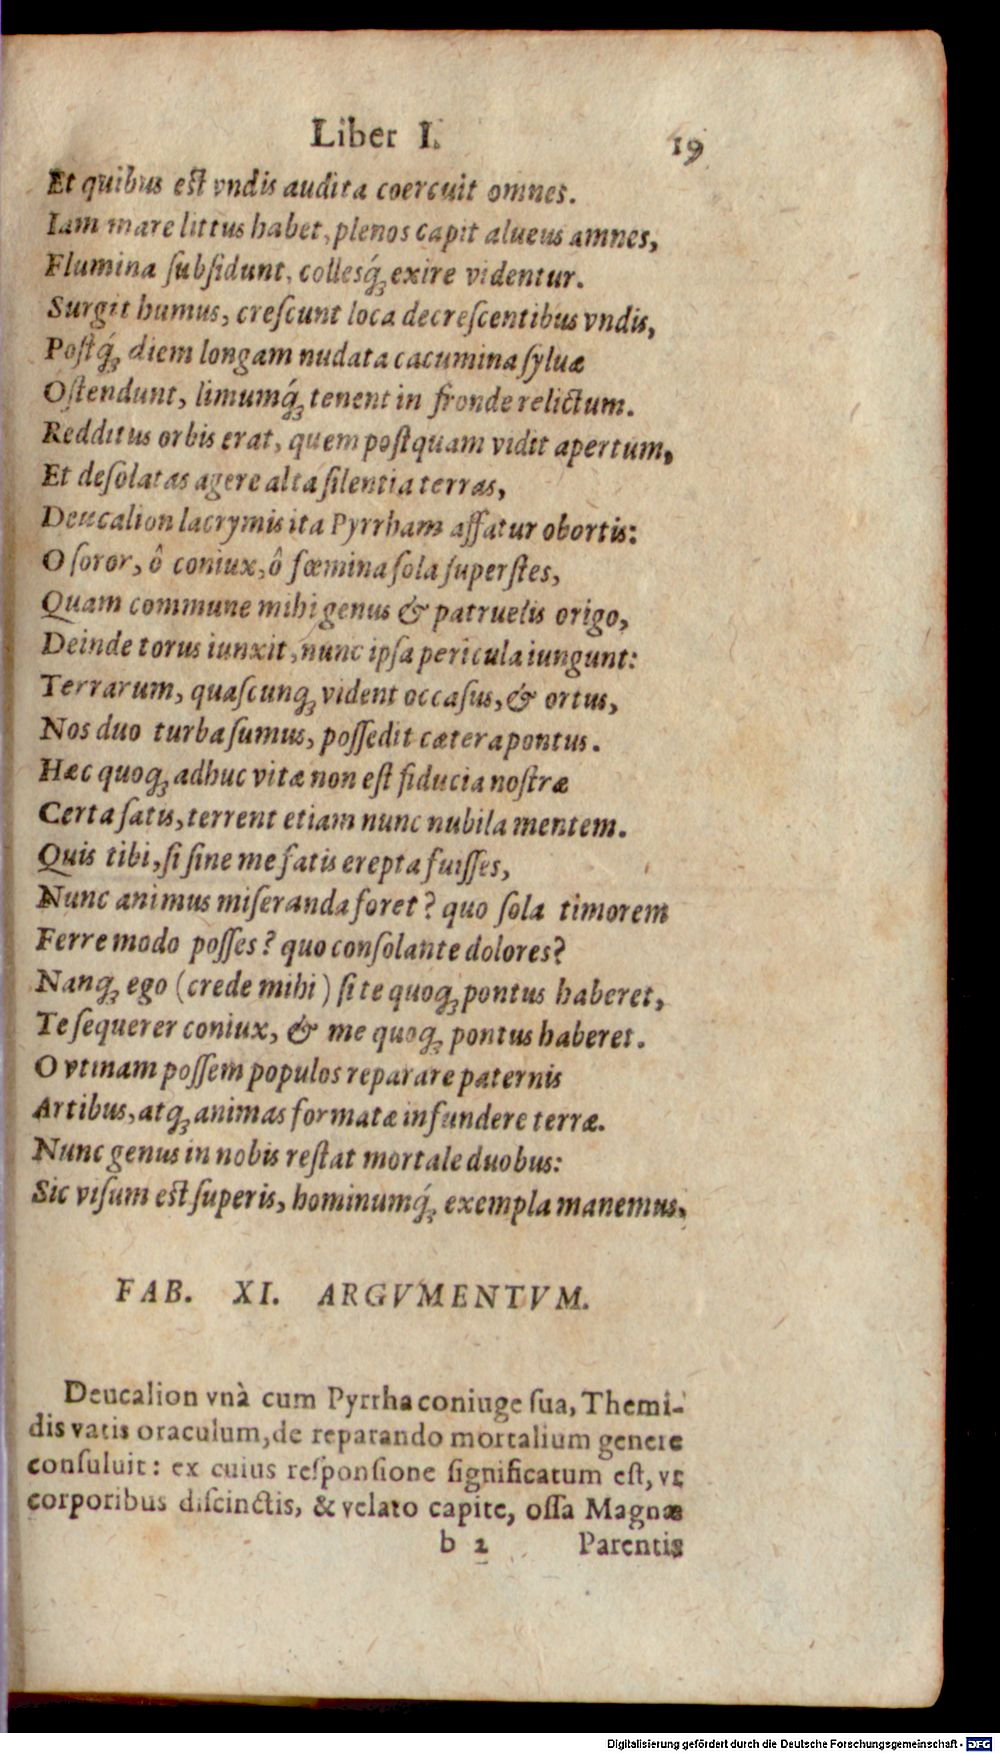 Liber I. 19
Et quibus est vndis audita coercuit omnes.
Iam mare littus habet, plenos capit alueus amnes,
Flumina ſubſidunt, colleſq́; exire videntur.
Surgit humus, creſcunt loca decreſcentibus vndis,
Poſtq́; diem longam nudata cacumina ſyluæ
Oſtendunt, limumq́; tenent in fronde relictum.
Redditus orbis erat, quem poſtquam vidit apertum,
Et deſolatas agere alta ſilentia terras,
Deucalion lacrymis ita Pyrrham affatur obortis:
O ſoror, ô coniux, ô fœmina ſola ſuperſtes,
Quam commune mihi genus & patruelis origo,
Deinde torus iunxit, nunc ipſa pericula iungunt:
Terrarum, quaſcunq; vident occaſus, & ortus,
Nos duo turba ſumus, poſſedit cætera pontus.
Hæc quoq; adhuc vitæ non eſt fiducia noſtræ
Certa ſatis, terrent etiam nunc nubila mentem.
Quis tibi, ſi ſine me fatis erepta fuiſſes,
Nunc animus miſeranda foret? quo ſola timorem
Ferre modo poſſes? quo conſolante dolores?
Nanq; ego (crede mihi) ſi te quoq; pontus haberet,
Te ſequerer coniux, & me quoq; pontus haberet.
O vtinam poſſem populos reparare paternis
Artibus, atq; animas formatæ infundere terræ.
Nunc genus in nobis reſtat mortale duobus:
Sic viſum eſt ſuperis, hominumq́; exempla manemus.
FAB. XI. ARGVMENTVM.
Deucalion vnà cum Pyrrha coniuge ſua, Themi-
dis vatis oraculum, de reparando mortalium genere
conſuluit: ex cuius reſponſione ſignificatum eſt, vt
corporibus diſcinctis, & velato capite, oſſa Magnæ
b 2 Parentis
Digitalisierung gefördert durch die Deutsche Forschungsgemeinschaft - DFG